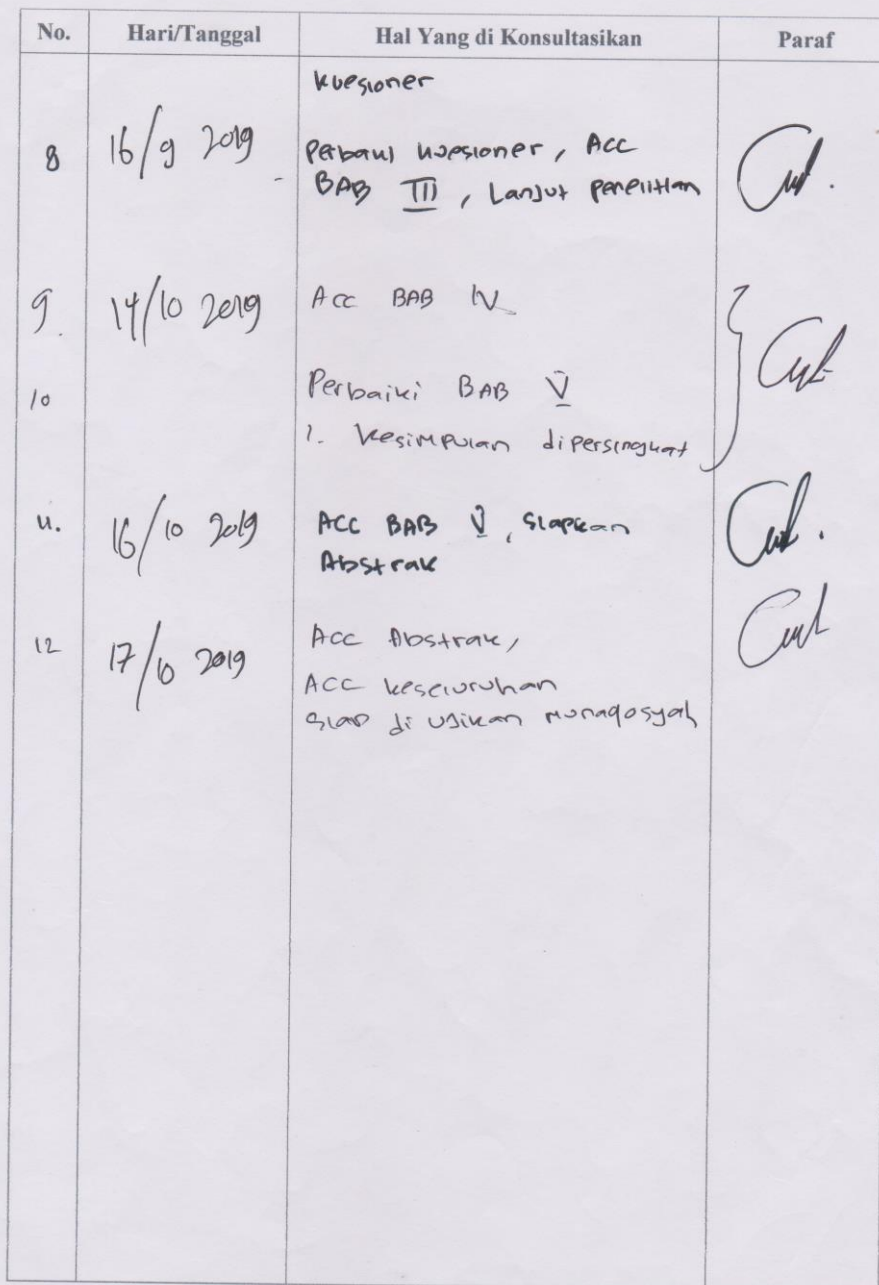 No. Hari/Tanggal Hal Yang di Konsultasikan Paraf
kuesioner
8 16/9 2019 Perbaiki kuesioner, Acc
BAB III, Lanjut penelitian
9. 14/10 2019 Acc BAB IV
10 Perbaiki BAB V
1. Kesimpulan dipersingkat
11. 16/10 2019 ACC BAB V, siapkan
Abstrak
12 17/10 2019 Acc Abstrak,
ACC keseluruhan
siap di ujikan munaqosyah